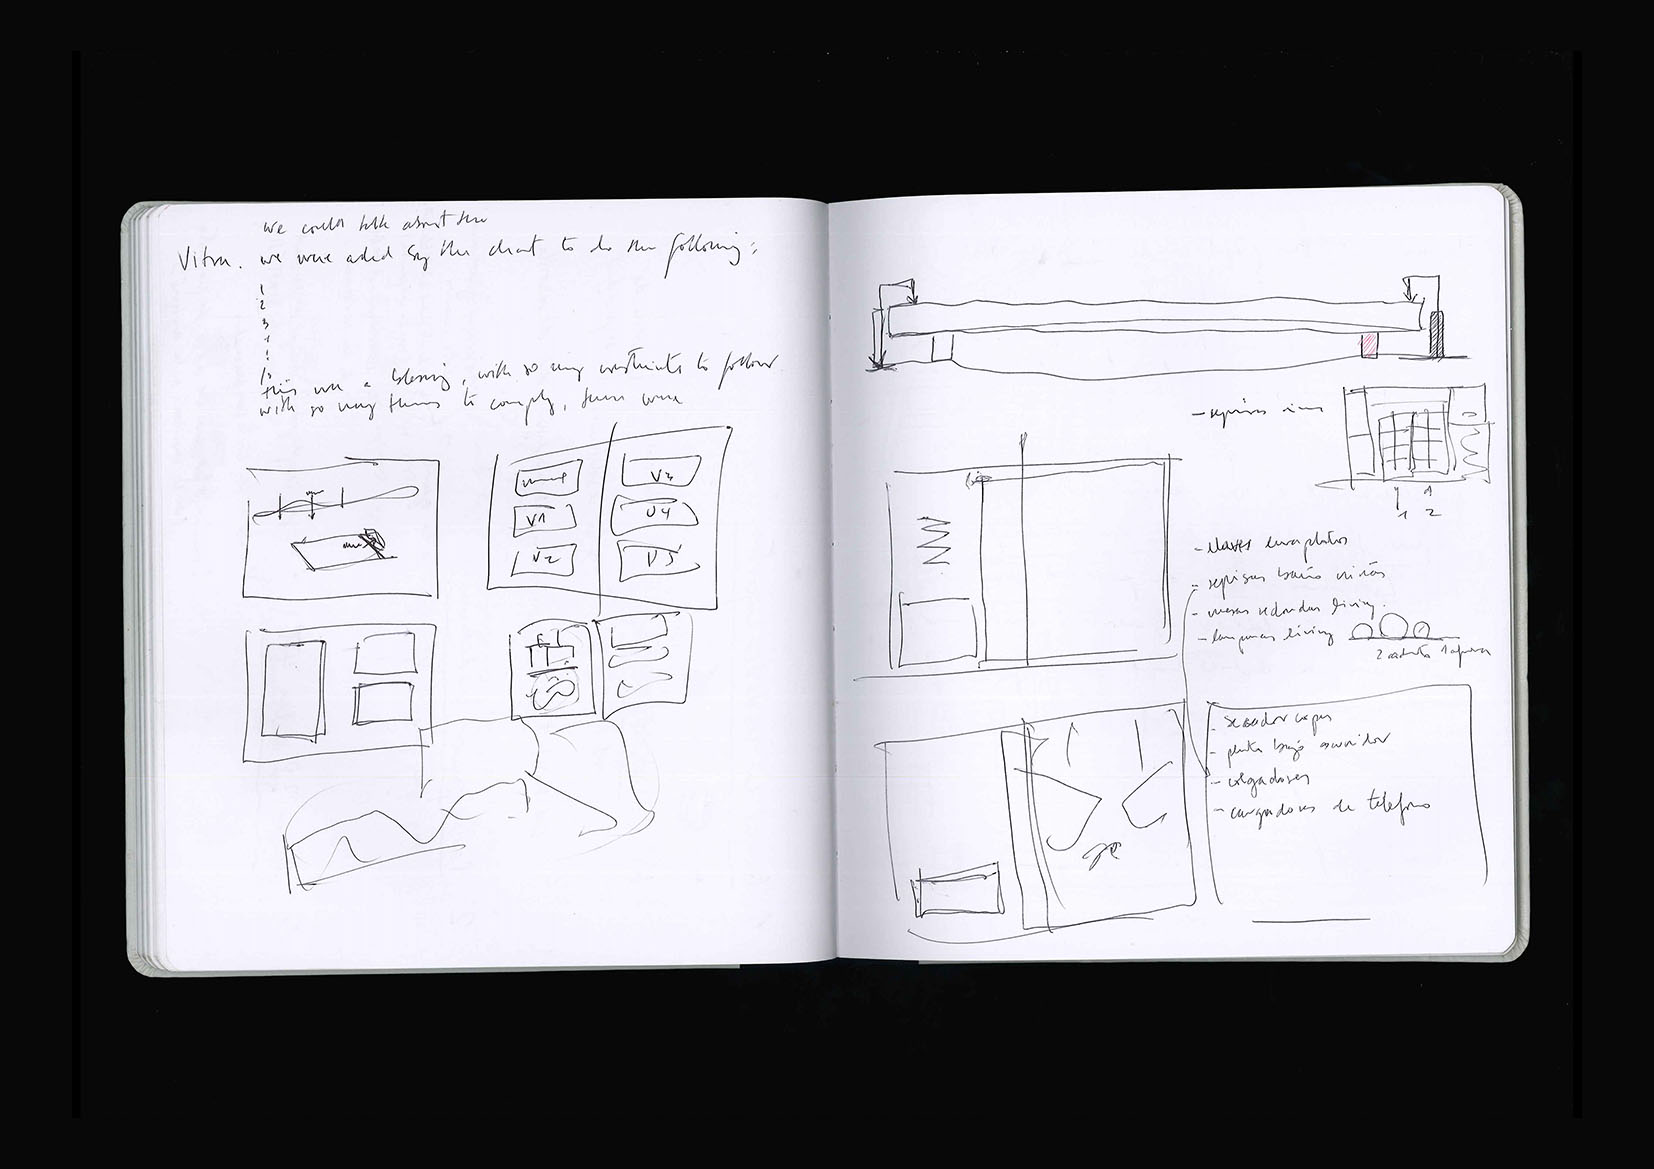 we could talk about the
Vitra. we were asked by the client to do the following:
1
2
3
this was a blessing, with so many constraints to follow
with so many things to comply, there were
V1
V2
V3
V4
V5
- repisas
1 2
- llaves lavaplatos
- repisas baño niños
- mesas redondas living.
- lamparas living
2 1
- secador copas
- planta bajo
- colgadores
- cargadores de telefono